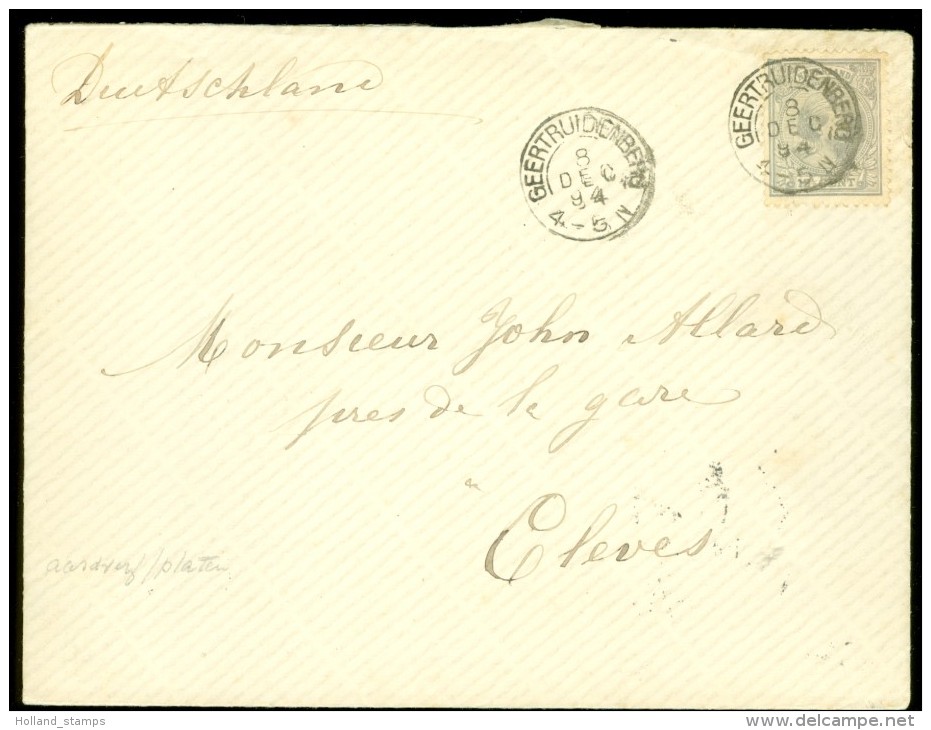 Deutschland
GEERTRUIDENBERG
8
DEC
94
4-5 N
GEERTRUIDENBERG
8
DEC
94
4-5 N
CENT
Monsieur John Allard
pres de la gare
à
Cleves
Holland_stamps
www.delcampe.net